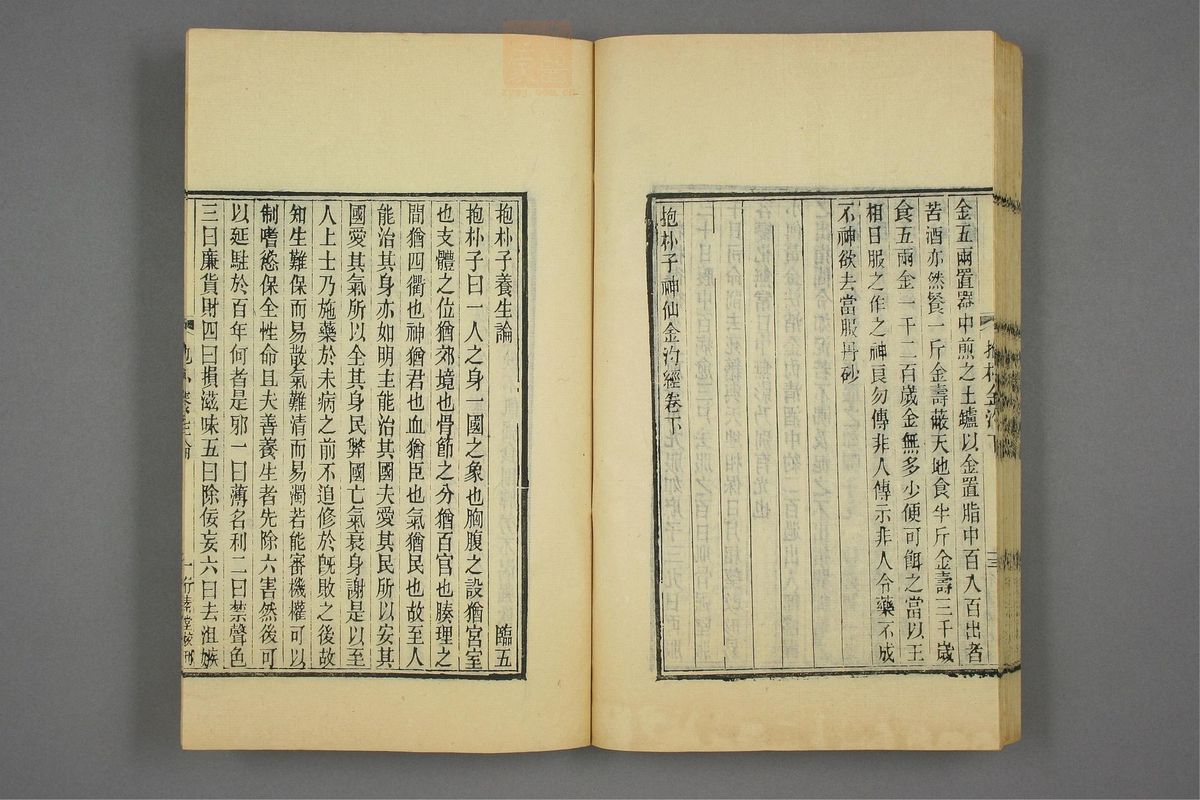 金五兩置器中煎之土鑪以金置脂中百入百出者
苦酒亦然餐一斤金壽蔽天地食半斤金壽三千歲
食五兩金一千二百歲金無多少便可餌之當以王
相日服之作之神良勿傳非人傳示非人令藥不成
不神欲去當服丹砂
抱朴子神仙金汋經卷下
抱朴子養生論
臨五
抱朴子曰一人之身一國之象也胸腹之設猶宮室
也支體之位猶郊境也骨節之分猶百官也腠理之
間猶四衢也神猶君也血猶臣也氣猶民也故至人
能治其身亦如明主能治其國夫愛其民所以安其
國愛其氣所以全其身民弊國亡氣衰身謝是以至
人上士乃施藥於未病之前不追修於旣敗之後故
知生難保而易散氣難清而易濁若能審機權可以
制嗜慾保全性命且夫善養生者先除六害然後可
以延駐於百年何者是邪一曰薄名利二曰禁聲色
三曰廉貨財四曰損滋味五曰除佞妄六曰去沮嫉